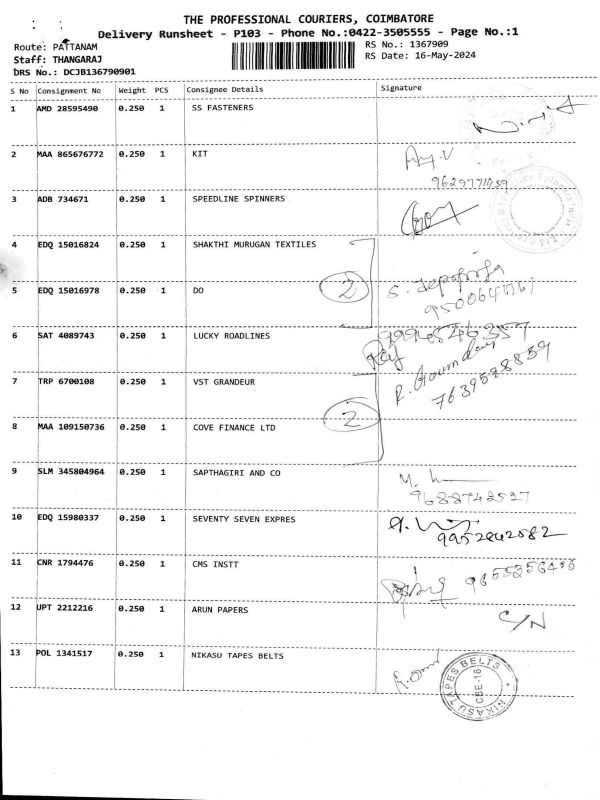 THE PROFESSIONAL COURIERS, COIMBATORE
Delivery Runsheet - P103 - Phone No.:0422-3505555 - Page No.:1
Route: PATTANAM
RS No.: 1367909
Staff: THANGARAJ
RS Date: 16-May-2024
DRS No.: DCJB136790901
S No Consignment No Weight PCS Consignee Details Signature
1 AMD 28595490 0.250 1 SS FASTENERS
2 MAA 865676772 0.250 1 KIT
3 ADB 734671 0.250 1 SPEEDLINE SPINNERS
4 EDQ 15016824 0.250 1 SHAKTHI MURUGAN TEXTILES
2
5 EDQ 15016978 0.250 1 DO
6 SAT 4089743 0.250 1 LUCKY ROADLINES
7 TRP 6700108 0.250 1 VST GRANDEUR
7639598859
2
8 MAA 109150736 0.250 1 COVE FINANCE LTD
9 SLM 345804964 0.250 1 SAPTHAGIRI AND CO
9688742527
10 EDQ 15980337 0.250 1 SEVENTY SEVEN EXPRES
9952842582
11 CNR 1794476 0.250 1 CMS INSTT
12 UPT 2212216 0.250 1 ARUN PAPERS C/N
13 POL 1341517 0.250 1 NIKASU TAPES BELTS
NIKASU TAPES BELTS
CBE-16